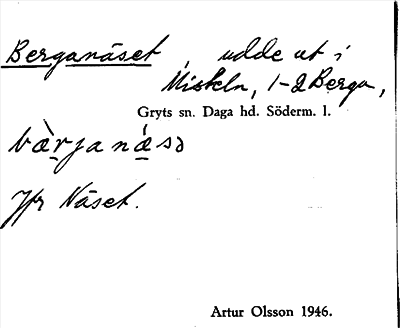 Berganäset, udde ut i
Misteln, 1-2 Berga,
Gryts sn. Daga hd. Söderm. l.
bær̲ja nǽ̲sə
Jfr Näset.
Artur Olsson 1946.